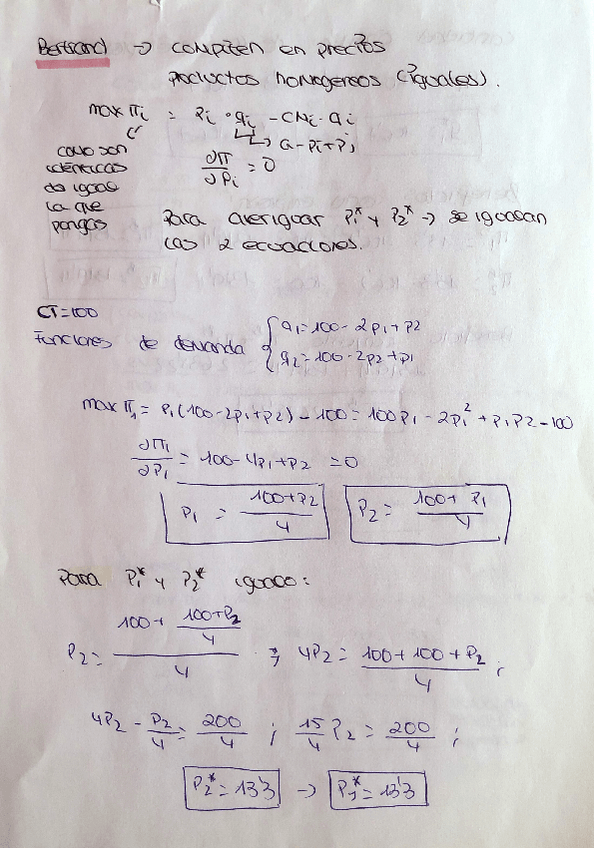 Bertrand → compiten en precios
productos homogeneos (iguales).
max πi = Pi · qi - CMi · qi
↳ a - Pi + Pj
∂π/∂Pi = 0
como son
idénticas
da igual
la que
pongas
Para averiguar P1* y P2* → se igualan
las 2 ecuaciones.
CT=100
Funciones de demanda { q1=100-2p1+p2
q2=100-2p2+p1
max π1 = P1(100-2p1+p2) - 100 = 100P1 - 2P1² + P1P2 - 100
∂π1/∂P1 = 100-4p1+p2 = 0
P1 = (100+P2)/4 P2 = (100+P1)/4
Para P1* y P2* igualo:
P2 = (100 + (100+P2)/4)/4 ; 4P2 = (100+100+P2)/4 ;
4P2 - P2/4 = 200/4 ; 15/4 P2 = 200/4 ;
P2* = 13'3 → P1* = 13'3